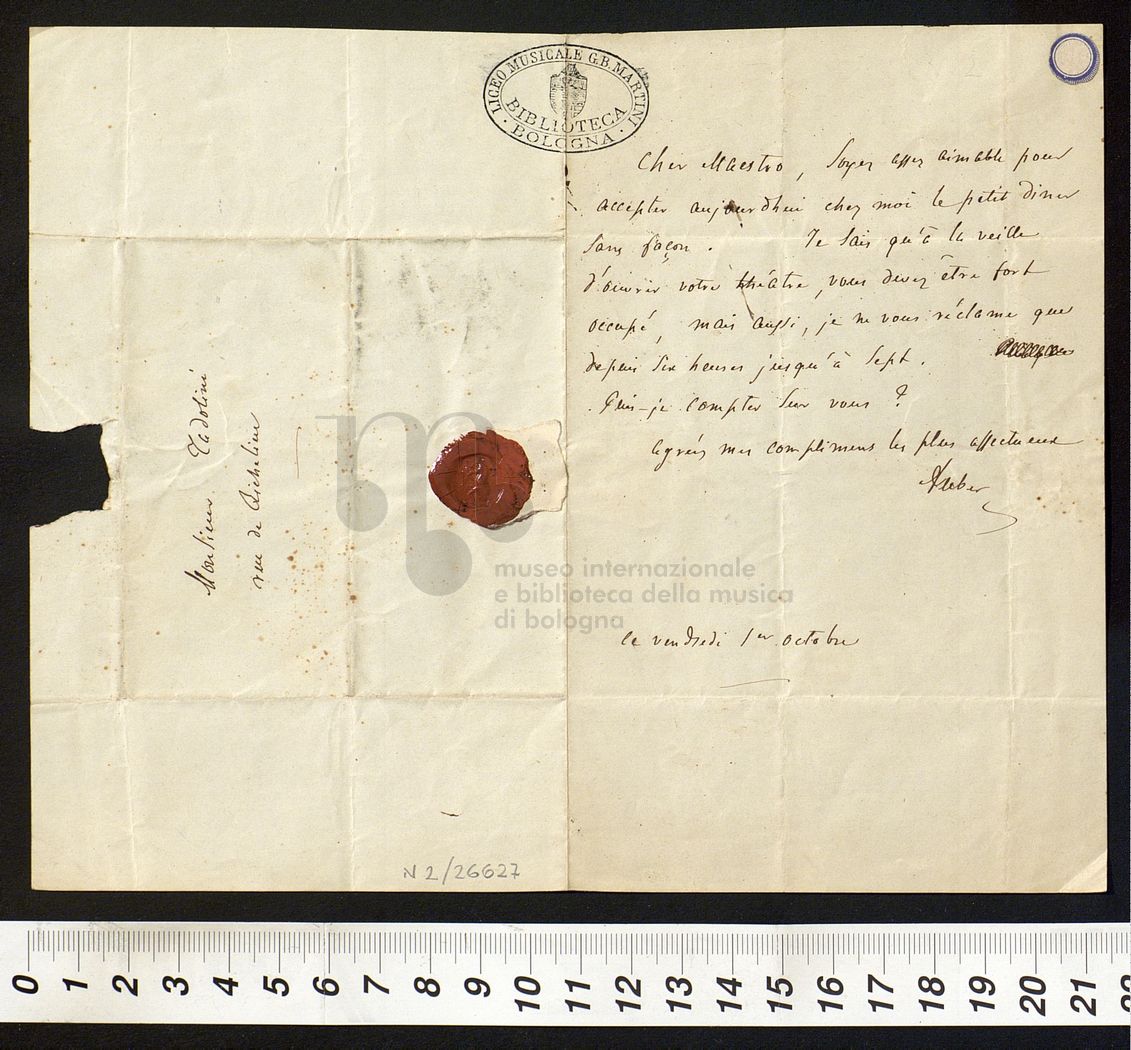 LICEO MUSICALE G.B. MARTINI
BIBLIOTECA
BOLOGNA
Cher Maestro, Soyez assez aimable pour
accepter aujourdhui chez moi le petit diner
sans façon. Je sais qu'à la veille
d'ouvrir votre théâtre, vous devez être fort
occupé, mais aussi, je ne vous réclame que
depuis six heures jusqu'à sept.
Puis-je compter sur vous ?
agréez mes complimens les plus affectueux
Auber
le vendredi 1er octobre
Monsieur Tadolini
rue de Richelieu
museo internazionale
e biblioteca della musica
di bologna
N 2/26627
0 1 2 3 4 5 6 7 8 9 10 11 12 13 14 15 16 17 18 19 20 21